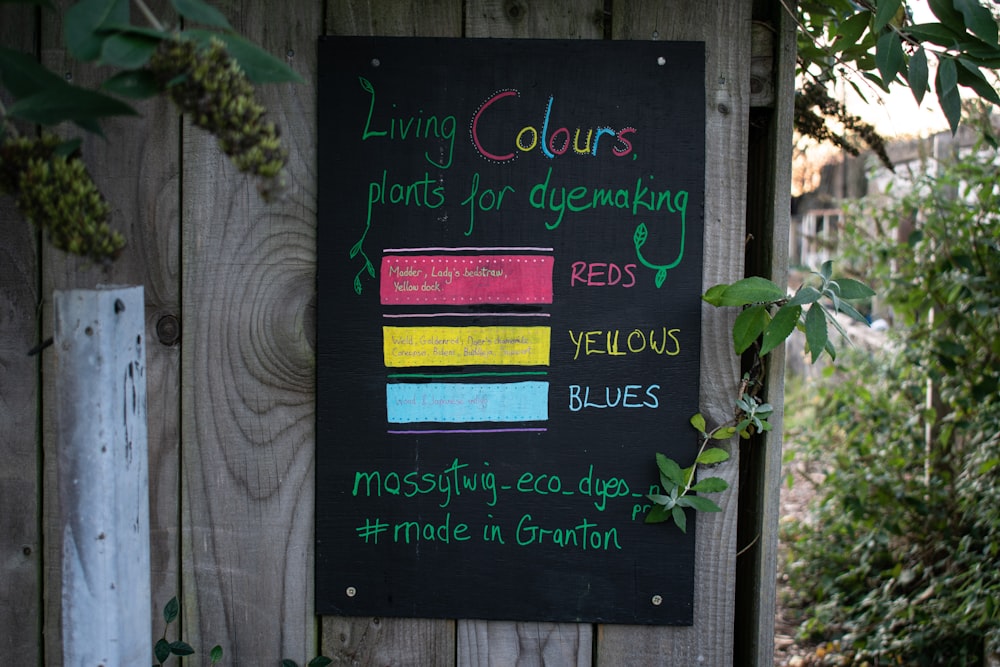 Living Colours,
plants for dyemaking
Madder, Lady's bedstraw,
Yellow dock.
REDS
Weld, Goldenrod, Dyer's chamomile
Coreopsis,
YELLOWS
Woad & Japanese indigo
BLUES
mossytwig-eco_dyes_
pr
#made in Granton